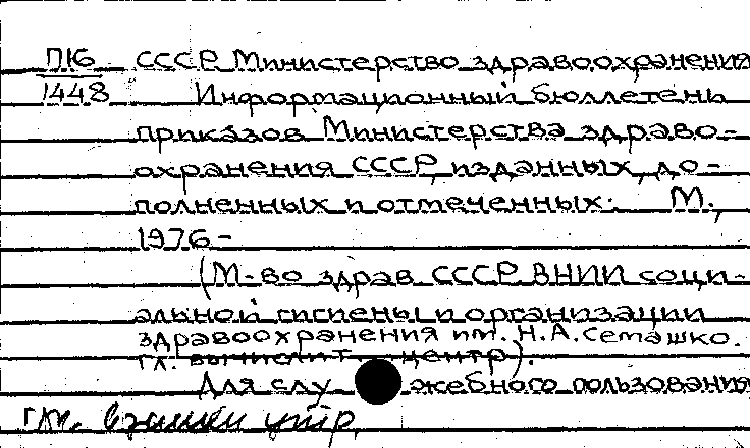 П16 СССР. Министерство здравоохранения
1448 Информационный бюллетень
приказов Министерства здраво-
охранения СССР, изданных, до-
полненных и отмеченных. М.,
1976-
(М-во здрав. СССР. ВНИИ соци-
альной гигиены и организации
здравоохранения им. Н.А. Семашко.
гл. вычислит. центр).
Для слу жебного пользования